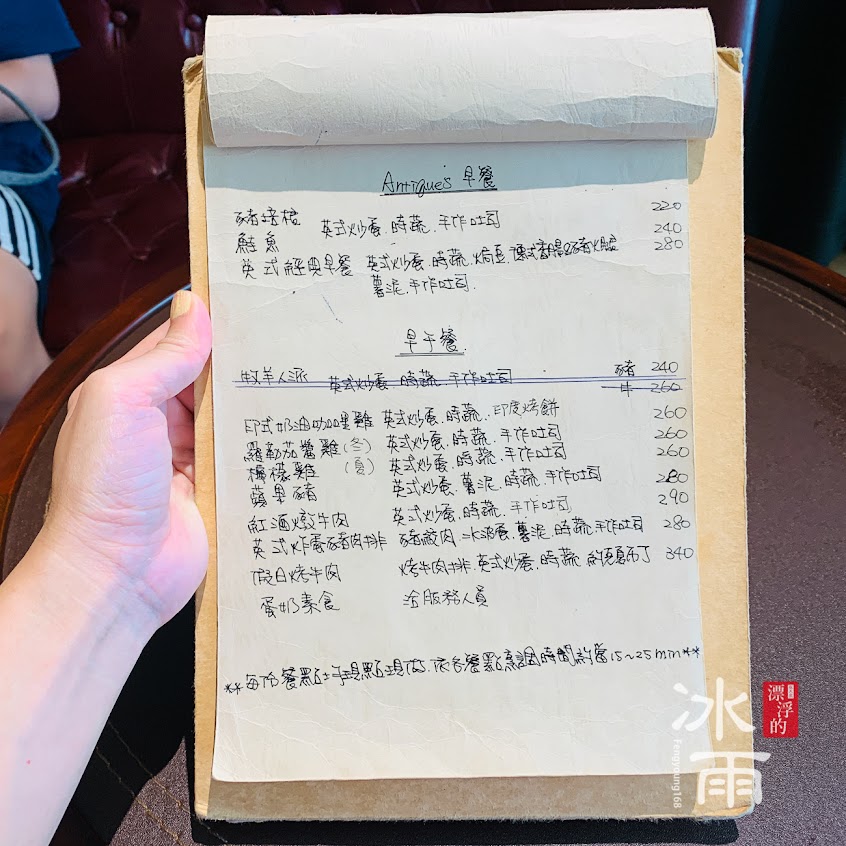 Antique's 早餐
豬培根 英式炒蛋.時蔬.手作吐司 220
鮭魚 240
英式經典早餐 英式炒蛋.時蔬.焗豆. 280
薯泥.手作吐司.
早午餐
牧羊人派 英式炒蛋.時蔬.手作吐司 豬 240
牛 260
印式奶油咖哩雞 英式炒蛋.時蔬.印度烤餅 260
羅勒茄醬雞(冬) 英式炒蛋.時蔬.手作吐司 260
檸檬雞(夏) 英式炒蛋.時蔬.手作吐司 260
蘋果豬 英式炒蛋.薯泥.時蔬.手作吐司 280
紅酒燉牛肉 英式炒蛋.時蔬.手作吐司 290
英式炸蛋豬肉排 豬絞肉.水波蛋.薯泥.時蔬.手作吐司 280
假日烤牛肉 烤牛肉排.英式炒蛋.時蔬.約克夏布丁 340
蛋奶素食 洽服務人員
**每份餐點於現點現做.依各餐點烹調時間約當15~25min**
漂浮的
冰雨
Fengyoung168